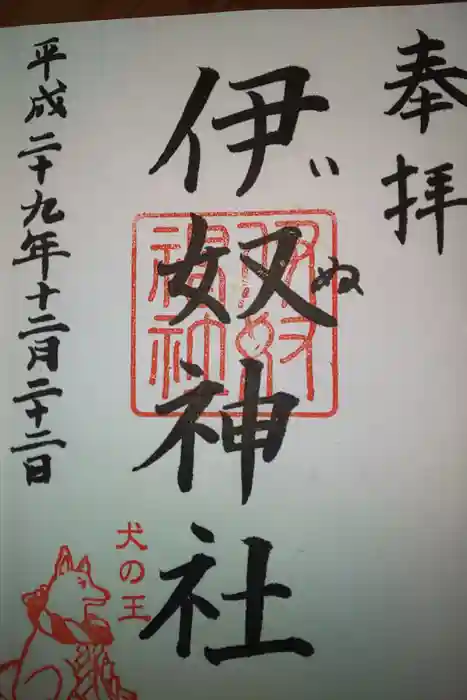 奉拝
伊奴神社
いぬ
平成二十九年十二月二十二日
犬の王